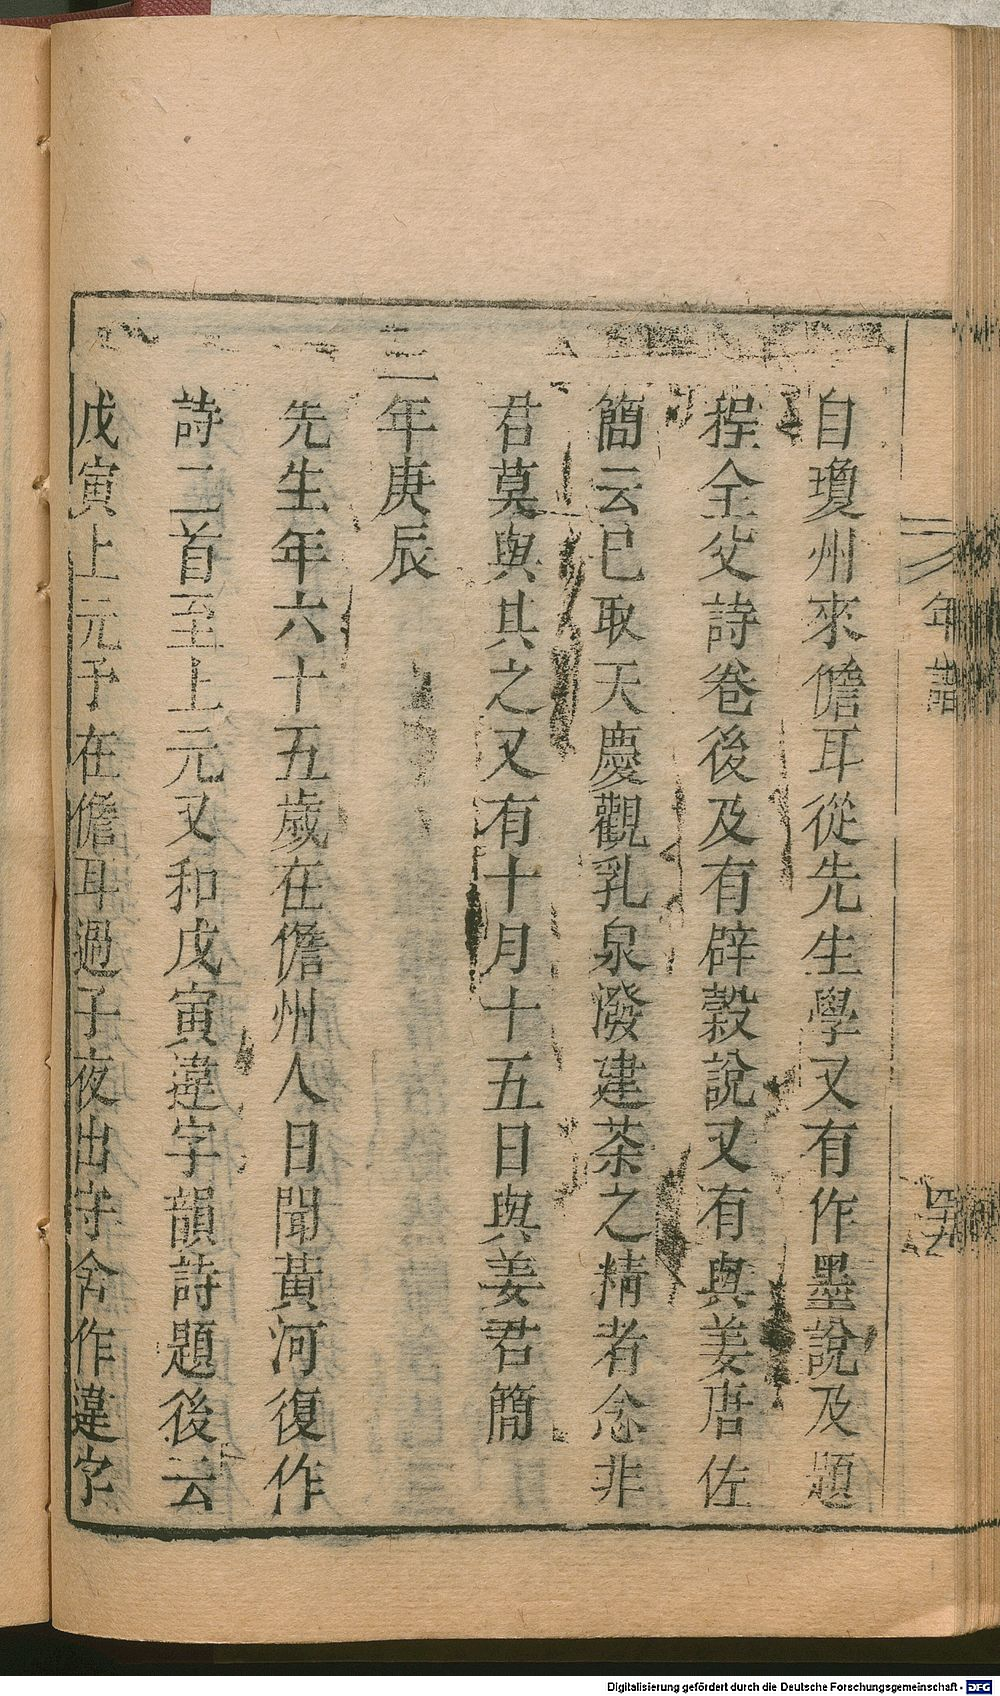 年譜
四十九
自瓊州來儋耳從先生學又有作墨說及題
程全父詩卷後及有辟穀說又有與姜唐佐
簡云已取天慶觀乳泉潑建茶之精者念非
君莫與共之又有十月十五日與姜君簡
三年庚辰
先生年六十五歲在儋州人日聞黃河復作
詩二首至上元又和戊寅違字韻詩題後云
戊寅上元予在儋耳過子夜出守舍作違字
Digitalisierung gefördert durch die Deutsche Forschungsgemeinschaft - DFG